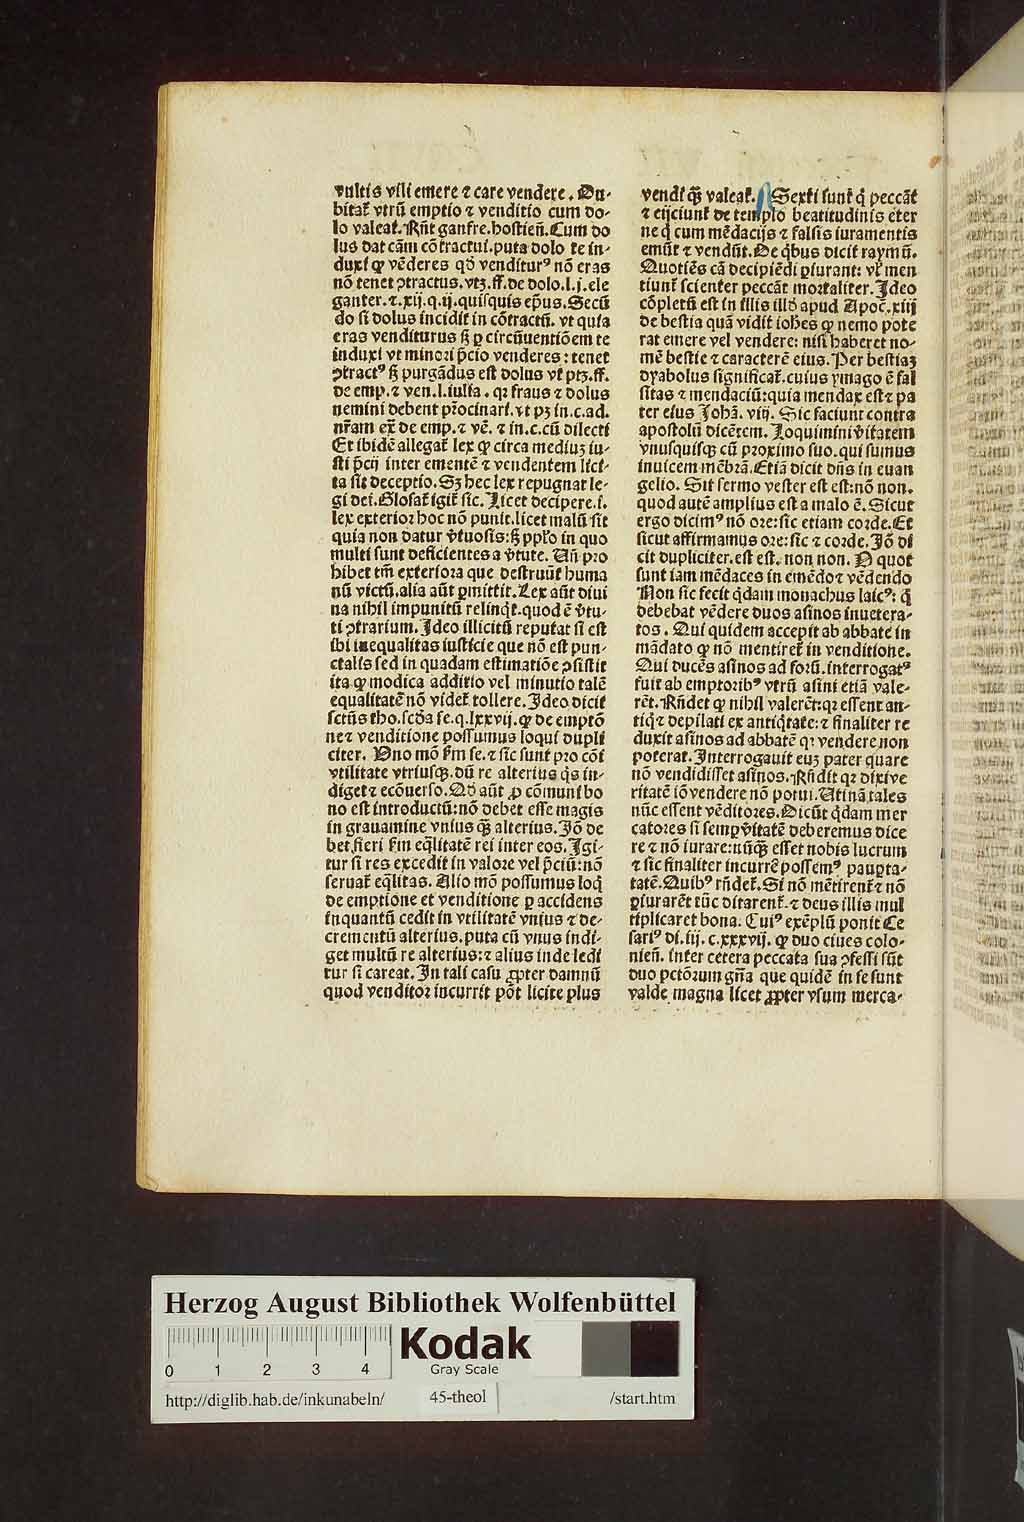 vultis vili emere ⁊ care vendere. Du-
bitat᷑ vtrū emptio ⁊ venditio cum do-
lo valeat. Rn̄t ganfre. hostieñ. Cum do
lus dat cām cōtractui. puta dolo te in-
duxi ꝙ vēderes qd̄ venditurꝰ nō eras
nō tenet ꝯtractus. vtꝫ. ff. de dolo. l. j. ele
ganter. ⁊. xij. q. ij. quisquis ep̄us. Secū
do si dolus incidit in cōtractū. vt quia
eras venditurus sꝫ ꝑ circūuentiōem te
induxi vt minori p̄cio venderes: tenet
ꝯtractꝰ sꝫ purgādus est dolus vt ptꝫ. ff.
de emp. ⁊ ven. l. iulia. qꝛ fraus ⁊ dolus
nemini debent pr̄ocinari. vt pꝫ in. c. ad.
nr̄am ex̄ de emp. ⁊ vē. ⁊ in. c. cū dilecti
Et ibidē allegat᷑ lex ꝙ circa mediuꝫ iu-
sti p̄cij inter ementē ⁊ vendentem lici-
ta sit deceptio. Sꝫ hec lex repugnat le-
gi dei. Glosat᷑ igit᷑ sic. Licet decipere. i.
lex exterior hoc nō punit. licet malū sit
quia non datur v̓tuosis: sꝫ pp̄lo in quo
multi sunt deficientes a v̓tute. Uñ pro
hibet tm̄ exteriora que destruūt huma
nū victū. alia aūt ꝑmittit. Lex aūt diui
na nihil impunitū relinq̄t. quod ē v̓tu-
ti ꝯtrarium. Ideo illicitū reputat si est
ibi inequalitas iusticie que nō est pun-
ctalis sed in quadam estimatiōe ꝯsistit
ita ꝙ modica additio vel minutio talē
equalitatē nō videt᷑ tollere. Ideo dicit
sctūs tho. scd̄a se. q. lxxvij. ꝙ de emptō
ne ⁊ venditione possumus loqui dupli
citer. Uno mō fm̄ se. ⁊ sic sunt pro cōi
vtilitate vtriusqꝫ. dū re alterius q̄s in-
diget ⁊ ecōuerso. Qd̄ aūt ꝓ cōmuni bo
no est introductū: nō debet esse magis
in grauamine vnius qꝫ alterius. Iō de
bet. fieri fm̄ eq̄litatē rei inter eos. Igi-
tur si res excedit in valore vel p̄ciū: nō
seruat᷑ eq̄litas. Alio mō possumus loq̄
de emptione et venditione ꝑ accidens
inquantū cedit in vtilitatē vnius ⁊ de-
crementū alterius. puta cū vnus indi-
get multū re alterius: ⁊ alius inde ledi
tur si careat. In tali casu ꝓpter damnū
quod venditor incurrit pōt licite plus
vendi qꝫ valeat. Sexti sunt q̄ peccāt
⁊ eijciunt᷑ de templo beatitudinis eter
ne q̄ cum mēdacijs ⁊ falsis iuramentis
emūt ⁊ vendūt. De q̄bus dicit raymū.
Quotiēs cā decipiēdi ꝑiurant: vl̓ men
tiunt᷑ scienter peccāt mortaliter. Ideo
cōpletū est in illis illd̄ apud Apoc̄. xiij
de bestia quā vidit ioh̄es ꝙ nemo pote
rat emere vel vendere: nisi haberet no-
mē bestie ⁊ caracterē eius. Per bestiaꝫ
dyabolus significat᷑. cuius ymago ē fal
sitas ⁊ mendaciū: quia mendax est ⁊ pa
ter eius Johā. viij. Sic faciunt contra
apostolū dicētem. Loquimini v̓itatem
vnusquisqꝫ cū proximo suo. qui sumus
inuicem mēbrā. Etiā dicit dn̄s in euan
gelio. Sit sermo vester est est: nō non.
quod autē amplius est a malo ē. Sicut
ergo dicimꝰ nō ore: sic etiam corde. Et
sicut affirmamus ore: sic ⁊ corde. Iō di
cit dupliciter. est est. non non. O quot
sunt iam mēdaces in emēdo ⁊ vēdendo
Non sic fecit q̄dam monachus laicꝰ: q̄
debebat vēdere duos asinos inuetera-
tos. Qui quidem accepit ab abbate in
mādato ꝙ nō mentiret᷑ in venditione.
Qui ducēs asinos ad forū. interrogatꝰ
fuit ab emptoribꝰ vtrū asini etiā vale-
rēt. Rn̄det ꝙ nihil valerēt: qꝛ essent an-
tiq̄ ⁊ depilati ex antiq̄tate: ⁊ finaliter re
duxit asinos ad abbatē qꝛ vendere non
poterat. Interrogauit euꝫ pater quare
nō vendidisset asinos. Rn̄dit qꝛ dixi ve
ritatē iō vendere nō potui. Utinā tales
nūc essent vēditores. Dicūt q̄dam mer
catores si semꝑ v̓itatē deberemus dice
re ⁊ nō iurare: nūqꝫ esset nobis lucrum
⁊ sic finaliter incurrē possemꝰ pauꝑta-
tatē. Quibꝰ rn̄det᷑. Si nō mētirent᷑ ⁊ nō
ꝑiurarēt tūc ditarent᷑. ⁊ deus illis mul
tiplicaret bona. Cuiꝰ exēplū ponit Ce
sariꝰ di. iij. c. xxxvij. ꝙ duo ciues colo-
nieñ. inter cetera peccata sua ꝯfessi sūt
duo pctōrum gn̄a que quidē in se sunt
valde magna licet ꝓpter vsum merca-
Herzog August Bibliothek Wolfenbüttel
0 1 2 3 4
Kodak
Gray Scale
http://diglib.hab.de/inkunabeln/ 45-theol /start.htm